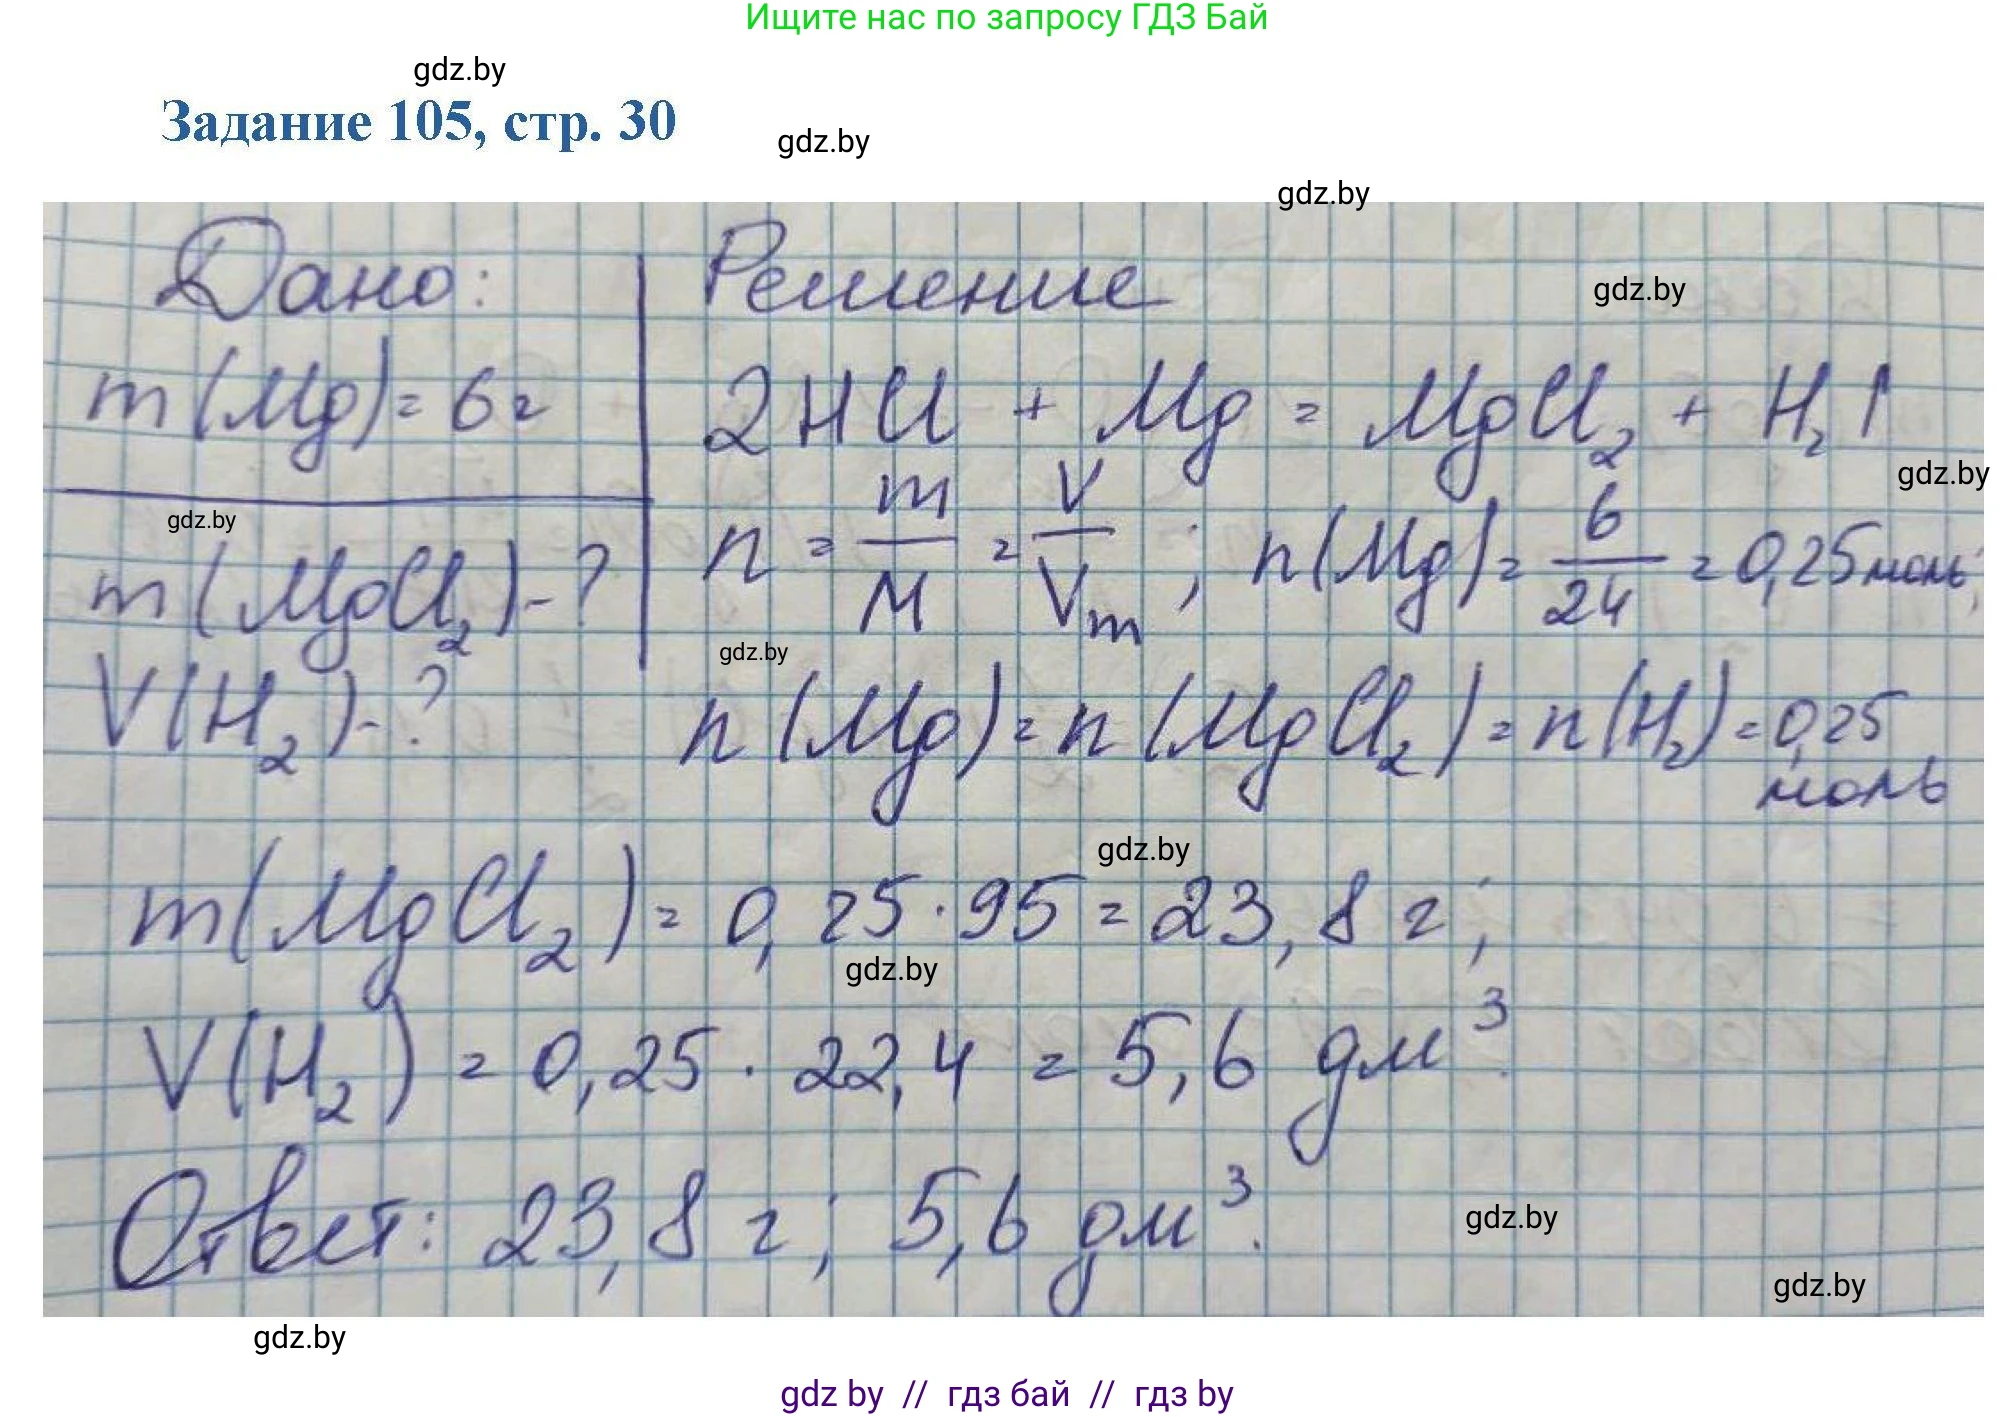 Ищите нас по запросу ГДЗ Бай
gdz.by
Задание 105, стр. 30
gdz.by
gdz.by
Дано:
Решение
gdz.by
m(Mg)=6г
2HCl + Mg = MgCl₂ + H₂↑
gdz.by
gdz.by
n = m/M = V/Vm; n(Mg)= 6/24 = 0,25моль;
m(MgCl₂)-?
gdz.by
V(H₂)-?
n(Mg)=n(MgCl₂)=n(H₂)=0,25
моль
gdz.by
m(MgCl₂)=0,25·95=23,8 г;
gdz.by
V(H₂) = 0,25 · 22,4 = 5,6 дм³.
Ответ: 23,8 г; 5,6 дм³.
gdz.by
gdz.by
gdz.by
gdz by // гдз бай // гдз by